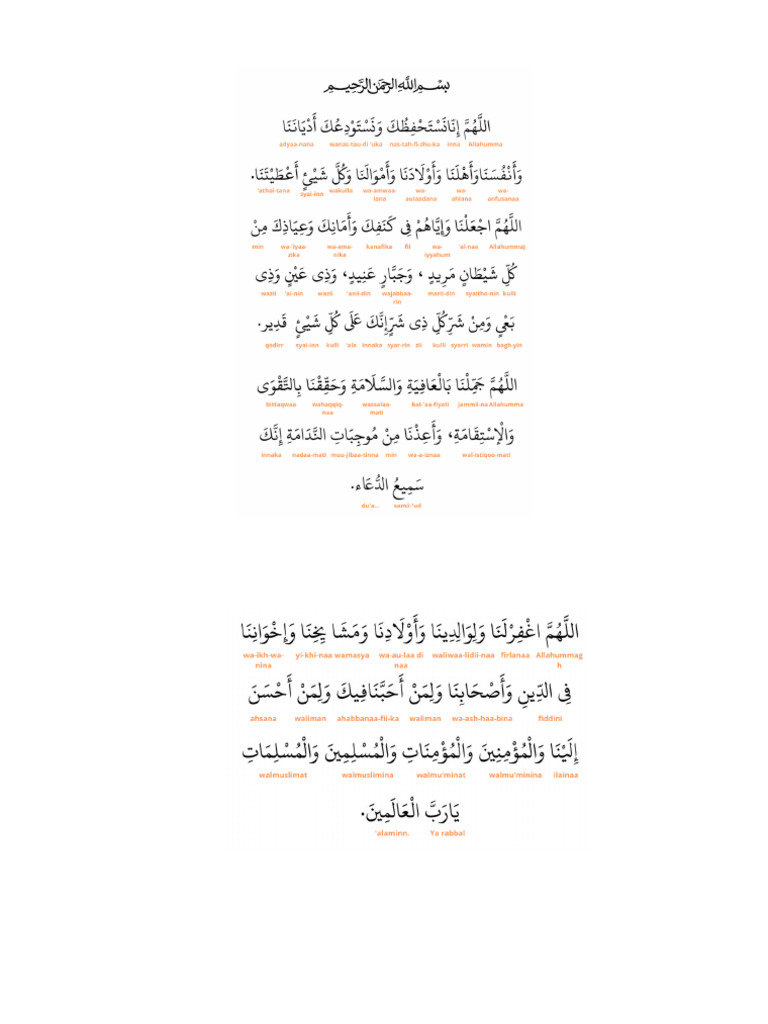 بِسْمِ اللَّهِ الرَّحْمَنِ الرَّحِيمِ
اللَّهُمَّ إِنَّانَسْتَحْفِظُكَ وَنَسْتَوْدِعُكَ أَدْيَانَنَا
adyaa-nana wanas-tau-di 'uka nas-tah-fi-zhu-ka inna Allahumma
وَأَنْفُسَنَاوَأَهْلَنَا وَأَوْلَادَنَا وَأَمْوَالَنَا وَكُلَّ شَيْئٍ أَعْطَيْتَنَا.
'athoi-tana syai-inn wakulla wa-amwaa-lana wa-aulaadana wa-ahlana wa-anfusanaa
اللَّهُمَّ اجْعَلْنَا وَإِيَّاهُمْ فِي كَنَفِكَ وَأَمَانِكَ وَعِيَاذِكَ مِنْ
min wa-'iyaa-zika wa-ama-nika kanafika fii wa-iyyahum 'al-naa Allahummaj
كُلِّ شَيْطَانٍ مَرِيدٍ ، وَجَبَّارٍ عَنِيدٍ، وَذِى عَيْنٍ وَذِى
wazil 'ai-nin wazii 'anii-din wajabbaa-rin marii-din syaitho-nin kulli
بَغْيٍ وَمِنْ شَرِّكُلِّ ذِى شَرٍّإِنَّكَ عَلَى كُلِّ شَيْئٍ قَدِير.
qodirr syai-inn kulli 'ala innaka syar-rin zii kulli syarri wamin bagh-yin
اللَّهُمَّ جَمِّلْنَا بَالْعَافِيَةِ وَالسَّلَامَةِ وَحَقِّقْنَا بِالتَّقْوَى
bittaqwaa wahaqqiq-naa wassalaa-mati bal-'aa-fiyati jammil-na Allahumma
وَالْإِسْتِقَامَةِ، وَأَعِذْنَا مِنْ مُوجِبَاتِ النَّدَامَةِ إِنَّكَ
innaka nadaa-mati muu-jibaa-tinna min wa-a-iznaa wal-istiqoo-mati
سَمِيعُ الدُّعَاء.
du'a... samii-'ud
اللَّهُمَّ اغْفِرْلَنَا وَلِوَالِدِينَا وَأَوْلَادِنَا وَمَشَا يِخِنَا وَإِخْوَانِنَا
wa-ikh-wa-nina yi-khi-naa wamasya wa-au-laa di naa waliwaa-lidii-naa firlanaa Allahummagh
فِي الدِّينِ وَأَصْحَابِنَا وَلِمَنْ أَحَبَّنَافِيكَ وَلِمَنْ أَحْسَنَ
ahsana waliman ahabbanaa-fii-ka waliman wa-ash-haa-bina fiddini
إِلَيْنَا وَالْمُؤْمِنِينَ وَالْمُؤْمِنَاتِ وَالْمُسْلِمِينَ وَالْمُسْلِمَاتِ
walmuslimat walmuslimina walmu'minat walmu'minina ilainaa
يَارَبَّ الْعَالَمِينَ.
'alaminn. Ya rabbal